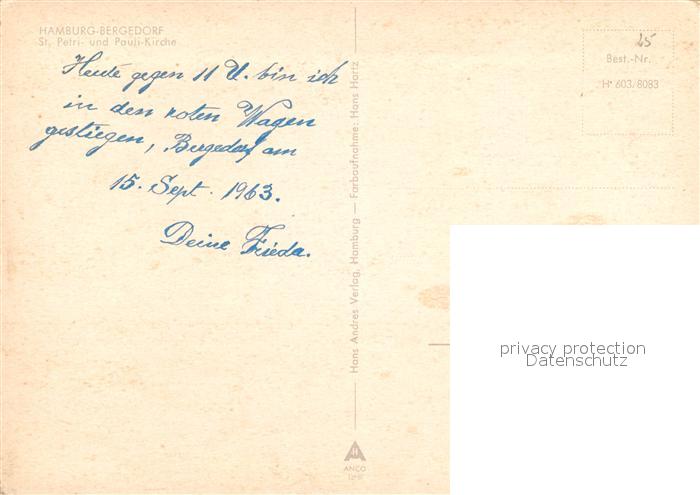 HAMBURG-BERGEDORF
St. Petri- und Pauli-Kirche
Heute gegen 11 U. bin ich
in den roten Wagen
gestiegen, Bergedorf am
15. Sept. 1963.
Deine Frieda.
Hans Andres Verlag, Hamburg — Farbaufnahme: Hans Hartz
ANCO
25
Best.-Nr.
H* 603/8083
privacy protection
Datenschutz